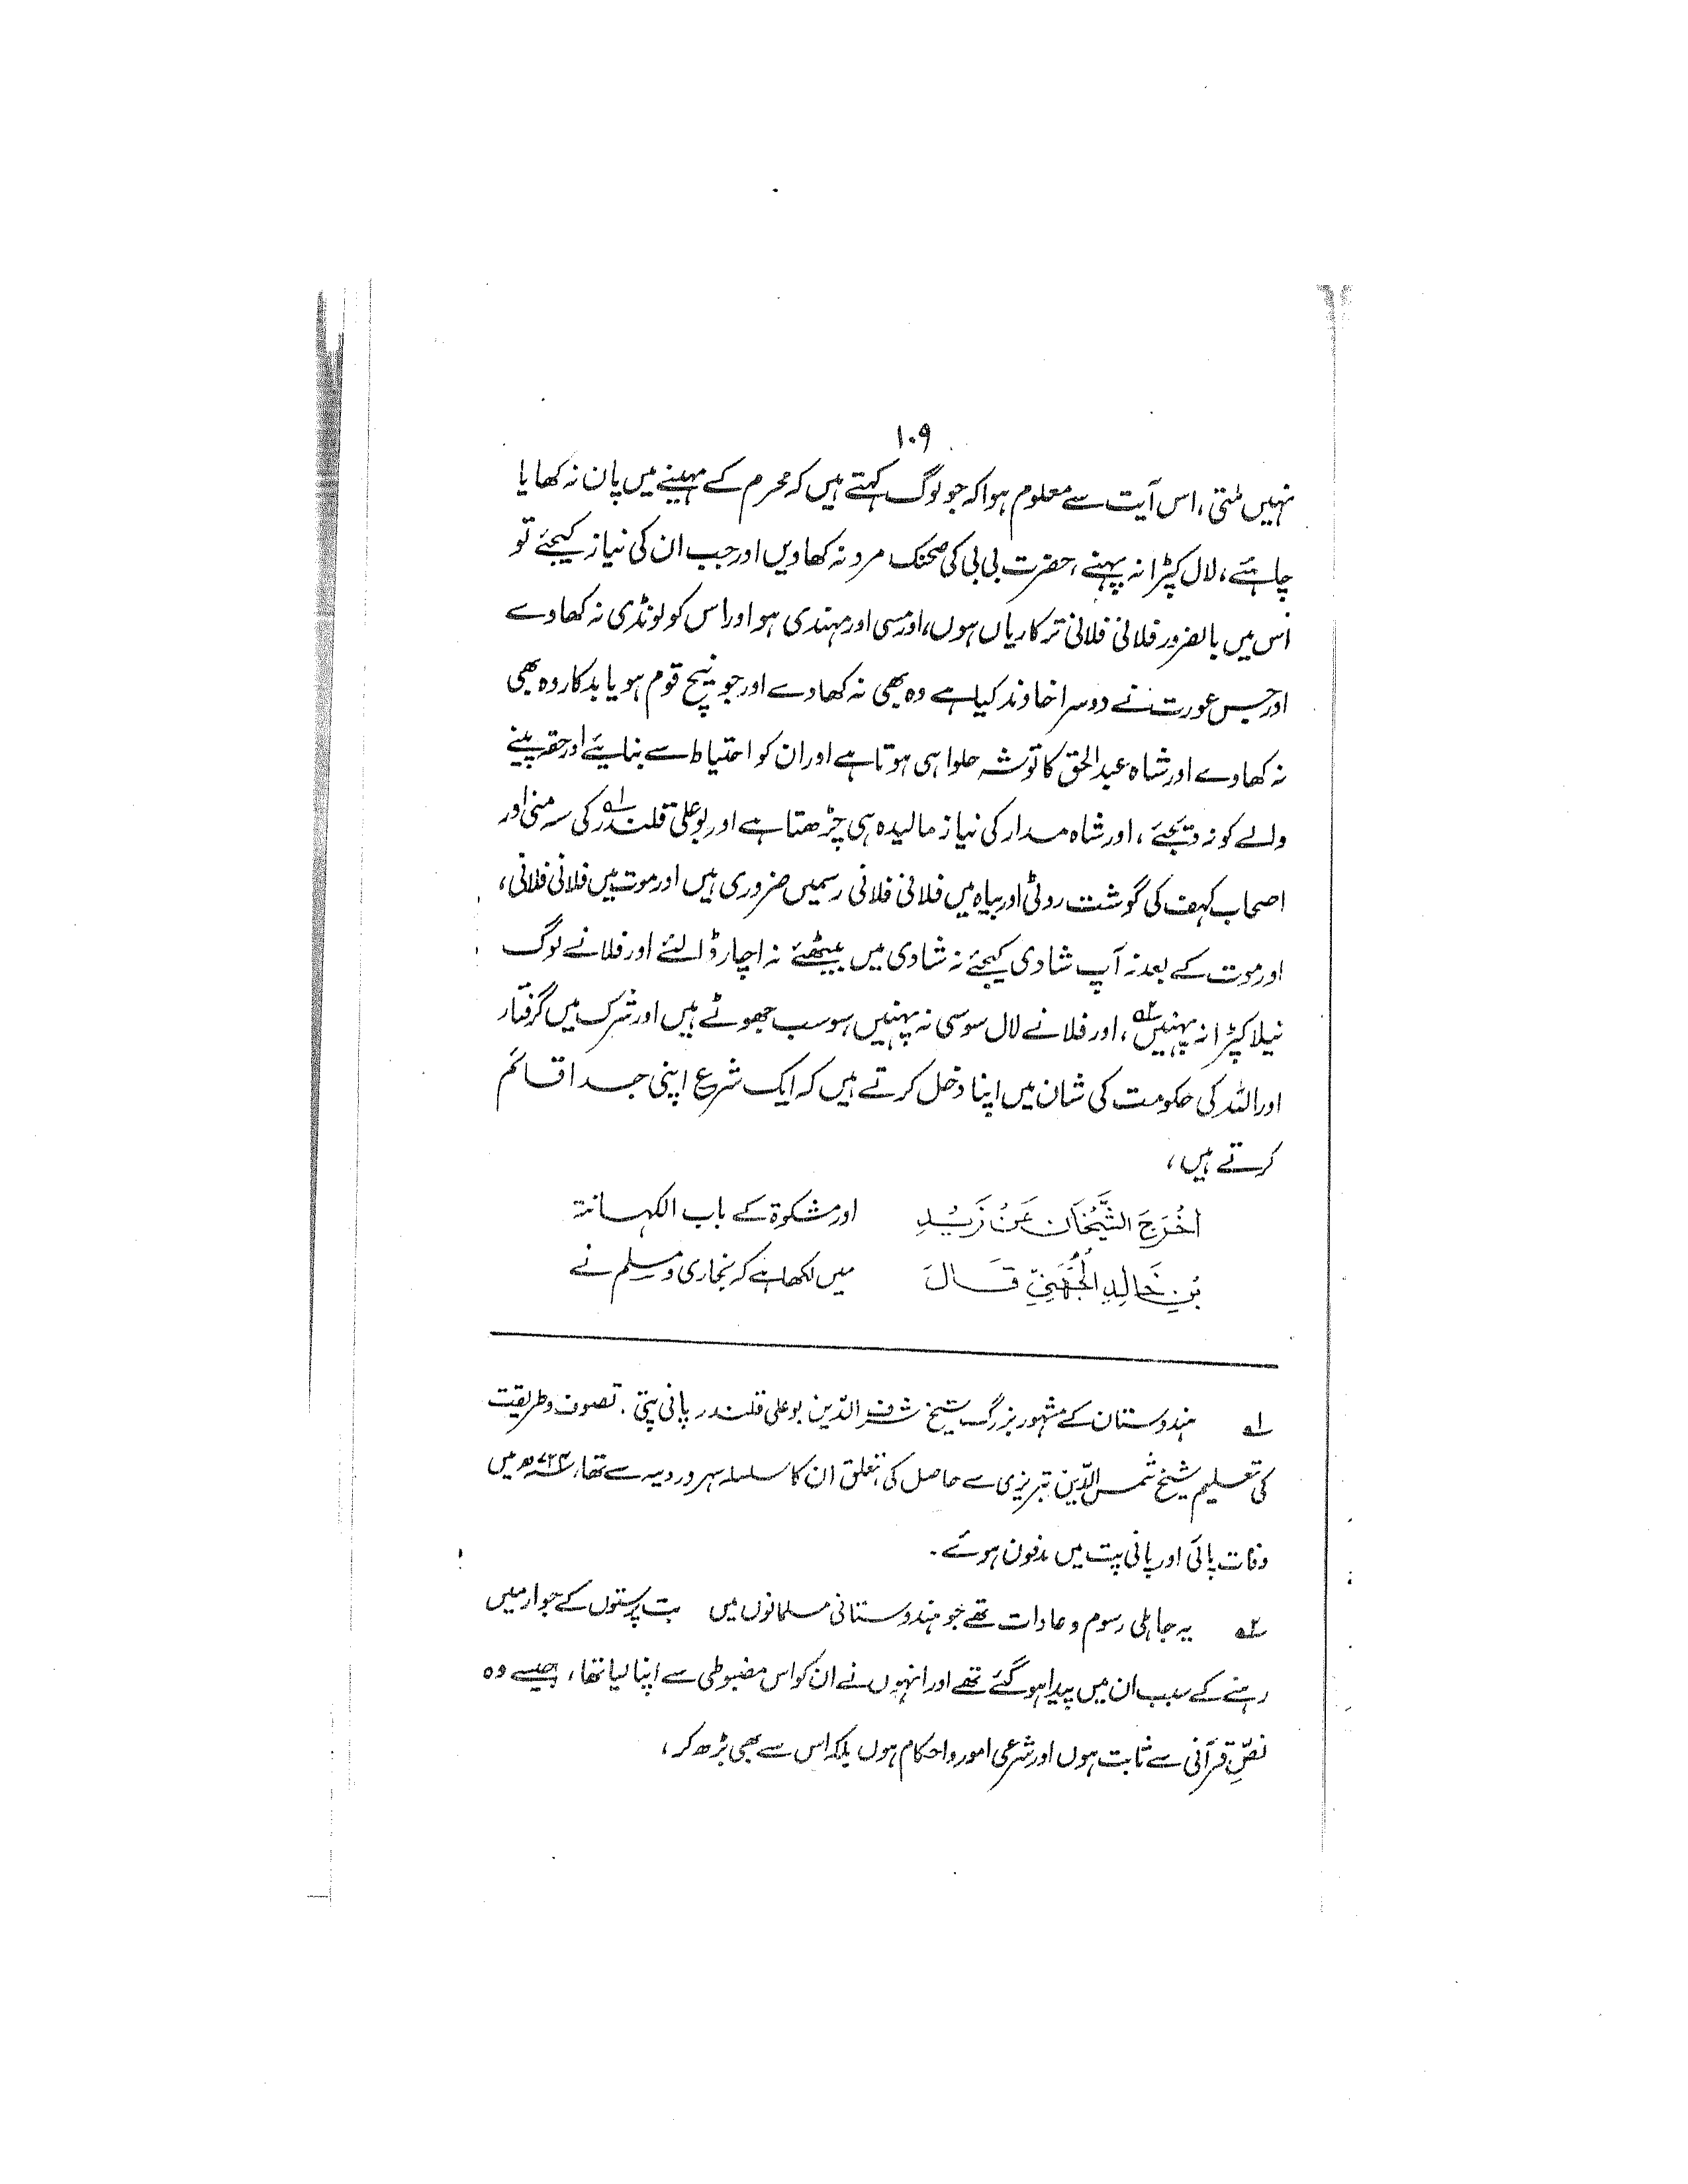 ۱۰۹
نہیں ملتی، اس آیت سے معلوم ہوا کہ جو لوگ کہتے ہیں کہ محرم کے مہینے میں پان نہ کھایا
چاہئے، لال کپڑا نہ پہنے، حضرت بی بی کی صحنک مرد نہ کھاویں اور جب ان کی نیاز کیجئے تو
اس میں بالضرور فلانی فلانی ترکاریاں ہوں، اور مسی اور مہندی ہو اور اس کو لونڈی نہ کھاوے
اور جس عورت نے دوسرا خاوند کیا ہے وہ بھی نہ کھاوے اور جو نیچ قوم ہو یا بدکار وہ بھی
نہ کھاوے اور شاہ عبدالحق کا توشہ حلوا ہی ہوتا ہے اور ان کو احتیاط سے بنایئے اور حقہ پینے
والے کو نہ دیجئے، اور شاہ مدار کی نیاز مالیدہ ہی چڑھتا ہے اور بوعلی قلندر؂۱ کی سہ منی اور
اصحاب کہف کی گوشت روٹی اور بیاہ میں فلانی فلانی رسمیں ضروری ہیں اور موت میں فلانی فلانی،
اور موت کے بعد نہ آپ شادی کیجئے نہ شادی میں بیٹھئے نہ اچار ڈالئے اور فلانے لوگ
نیلا کپڑا نہ پہنیں؂۲، اور فلانے لال سوسی نہ پہنیں، سو سب جھوٹے ہیں اور شرک میں گرفتار
اور اللہ کی حکومت کی شان میں اپنا دخل کرتے ہیں کہ ایک شرع اپنی جدا قائم
کرتے ہیں،
اَخْرَجَ الشَّيْخَانِ عَنْ زَيْدِ اور مشکوٰۃ کے باب الکہانۃ
بْنِ خَالِدِ الْجُهَنِيِّ قَالَ میں لکھا ہے کہ بخاری و مسلم نے
؂۱ ہندوستان کے مشہور بزرگ شیخ شرف الدّین بوعلی قلندر پانی پتی. تصوف و طریقت
کی تعلیم شیخ شمس الدّین تبریزی سے حاصل کی، تعلق ان کا سلسلہ سہروردیہ سے تھا، ۷۲۴ھ میں
وفات پائی اور پانی پت میں مدفون ہوئے۔
؂۲ یہ جاہلی رسوم و عادات تھے جو ہندوستانی مسلمانوں میں بت پرستوں کے جوار میں
رہنے کے سبب ان میں پیدا ہو گئے تھے اور انہوں نے ان کو اس مضبوطی سے اپنا لیا تھا، جیسے وہ
نصِّ قرآنی سے ثابت ہوں اور شرعی امور و احکام ہوں بلکہ اس سے بھی بڑھ کر،